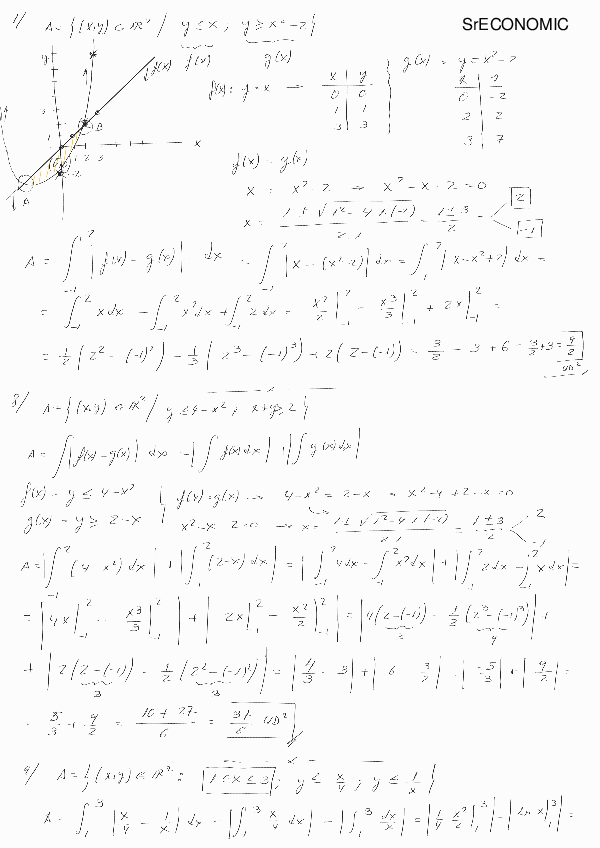 SrECONOMIC
1/ A = { (x,y) ∈ ℝ² / y ≤ x ; y ≥ x² - 2 }
f(x) g(x)
f(x) = y = x → x | y
0 | 0
1 | 1
3 | 3
g(x) = y = x² - 2
x | y
0 | -2
2 | 2
3 | 7
f(x) = g(x)
x = x² - 2 → x² - x - 2 = 0
x = (1 ± √(1² - 4·1·(-2))) / 2·1 = (1 ± 3)/2 2 -1
A = ∫₋₁² |f(x) - g(x)| dx = ∫₋₁² |x - (x² - 2)| dx = ∫₋₁² |x - x² + 2| dx =
= ∫₋₁² x dx - ∫₋₁² x² dx + ∫₋₁² 2 dx = x²/2 |₋₁² - x³/3 |₋₁² + 2x |₋₁² =
= 1/2 (2² - (-1)²) - 1/3 (2³ - (-1)³) + 2(2 - (-1)) = 3/2 - 3 + 6 = 3/2 + 3 = 9/2 UD²
A = { (x,y) ∈ ℝ² / y ≤ 4 - x² ; x + y ≥ 2 }
A = ∫ |f(x) - g(x)| dx = |∫ f(x) dx| + |∫ g(x) dx|
f(x) = y ≤ 4 - x² | f(x) = g(x) → 4 - x² = 2 - x → x² - 4 + 2 - x = 0
g(x) = y ≥ 2 - x | x² - x - 2 = 0 → x = (1 ± √(1² - 4·1·(-2))) / 2·1 = (1 ± 3)/2 2 -1
A = |∫₋₁² (4 - x²) dx| + |∫₋₁² (2 - x) dx| = |∫₋₁² 4 dx - ∫₋₁² x² dx| + |∫₋₁² 2 dx - ∫₋₁² x dx| =
= |4x |₋₁² - x³/3 |₋₁²| + |2x |₋₁² - x²/2 |₋₁²| = |4(2 - (-1)) - 1/3 (2³ - (-1)³)| +
+ |2(2 - (-1)) - 1/2 (2² - (-1)²)| = |4/3 - 3| + |6 - 3/2| = |-5/3| + |9/2| =
= 5/3 + 9/2 = (10 + 27)/6 = 37/6 UD²
4/ A = { (x,y) ∈ ℝ² : 1 ≤ x ≤ 3 ; y ≤ x/4 ; y ≤ 1/x }
A = ∫₁³ |x/4 - 1/x| dx = |∫₁³ x/4 dx| - |∫₁³ dx/x| = |1/4 x²/2 |₁³| - |ln x |₁³| =